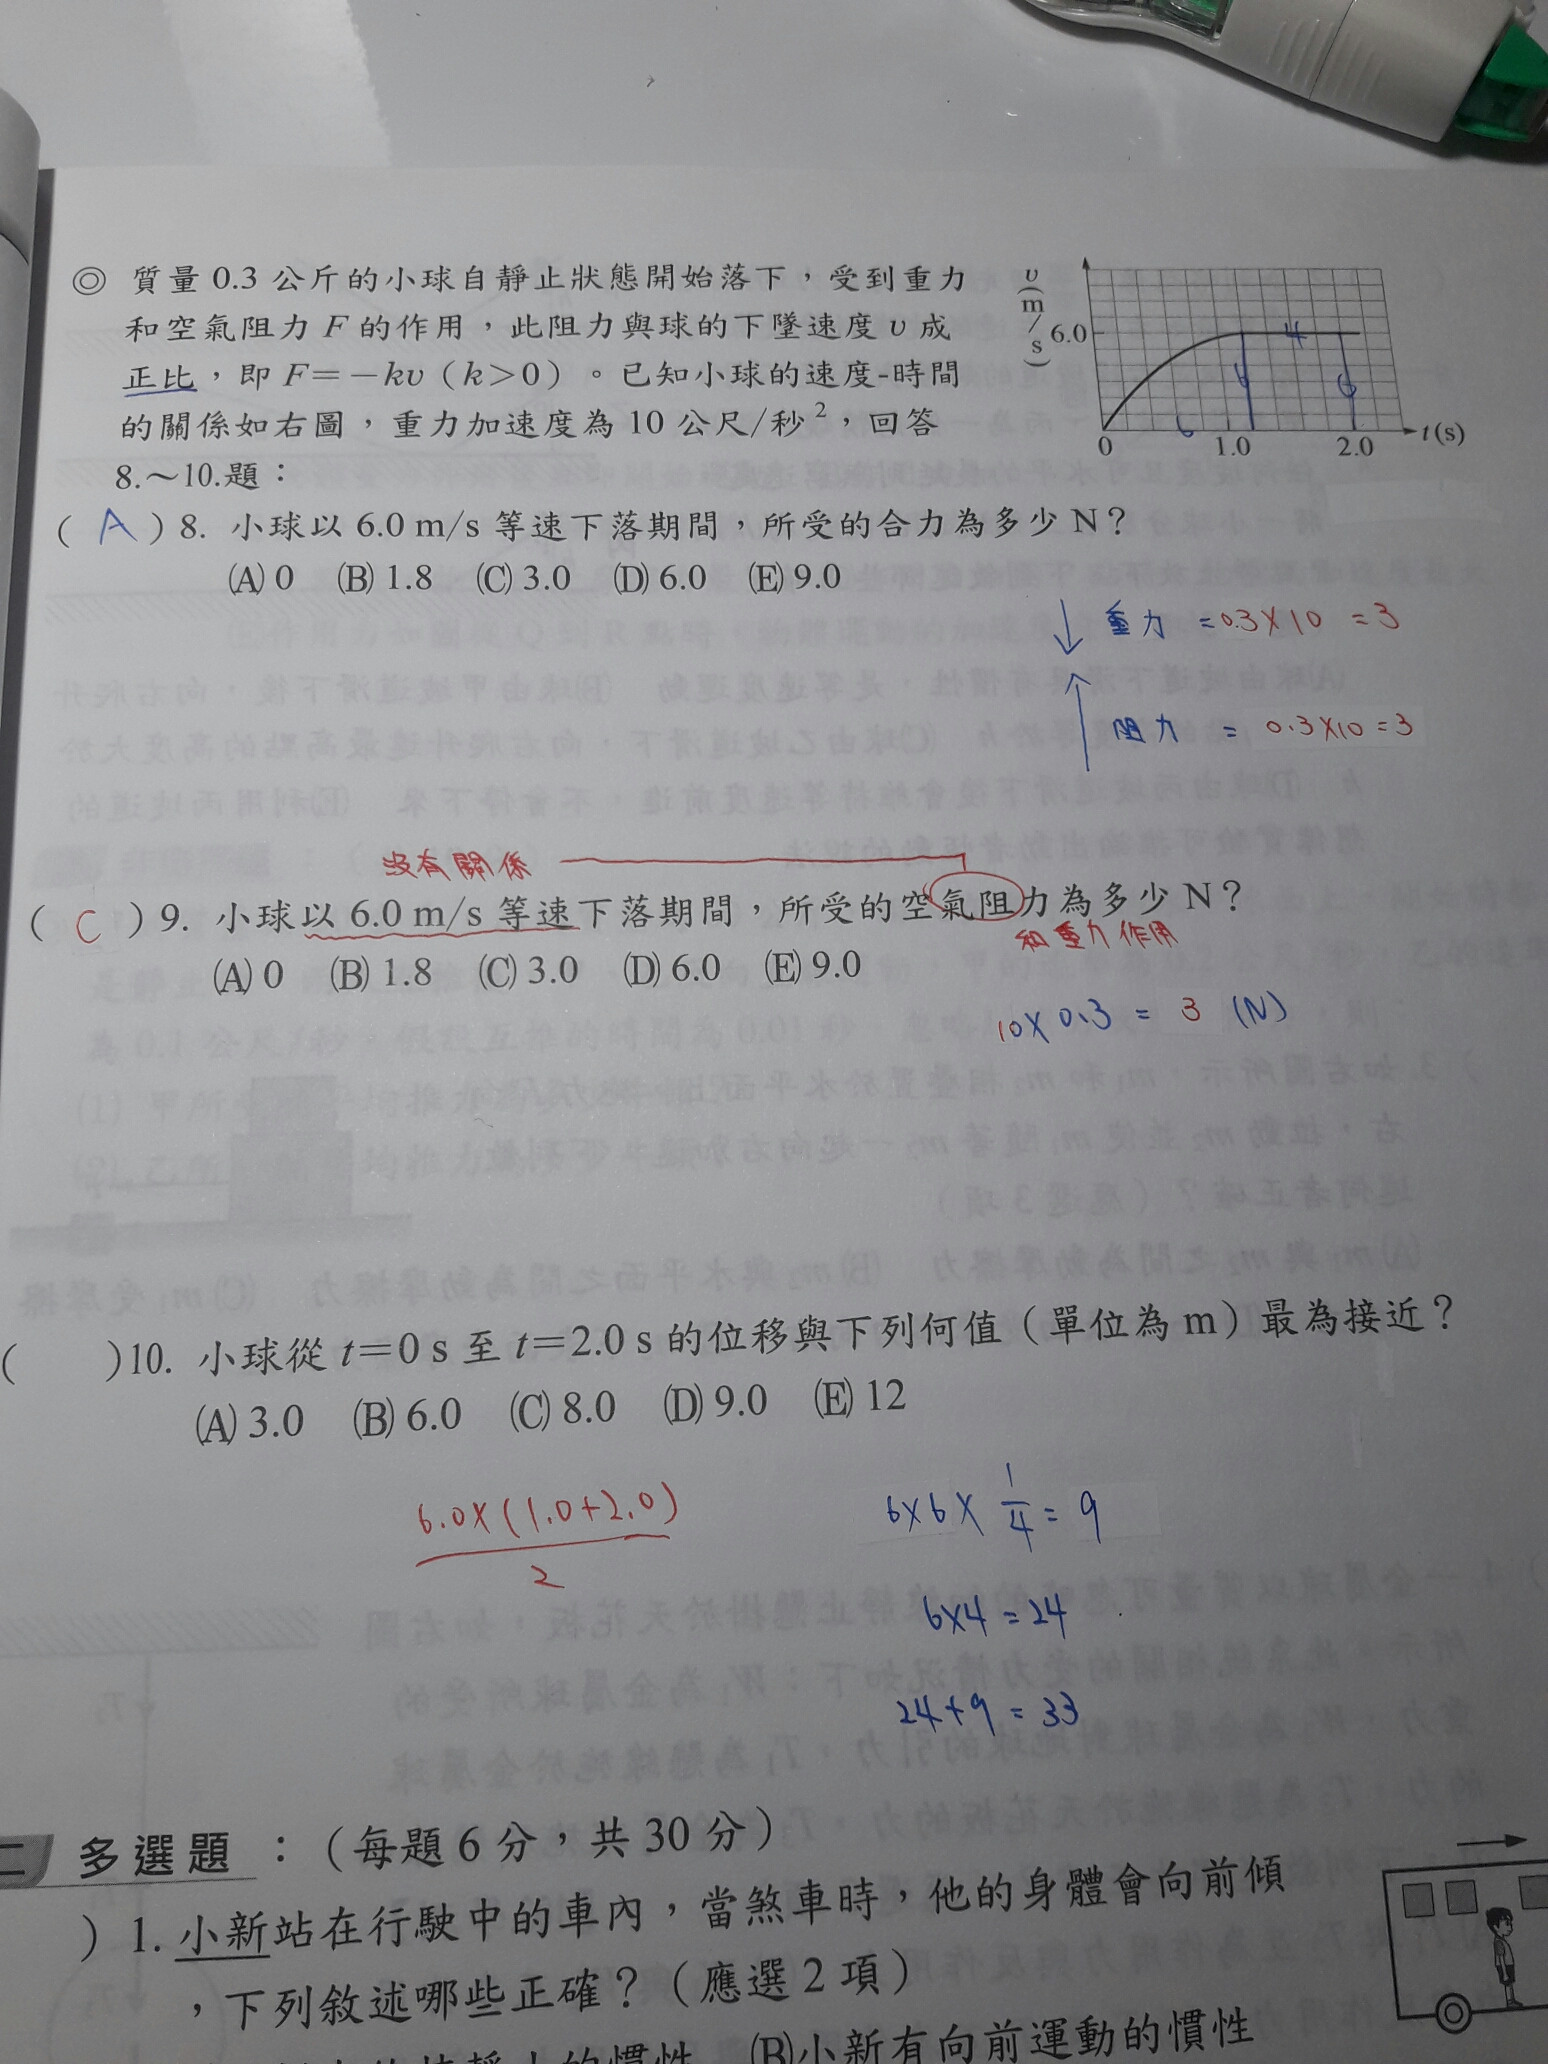 ◎ 質量 0.3 公斤的小球自靜止狀態開始落下，受到重力
和空氣阻力 F 的作用，此阻力與球的下墜速度 υ 成
正比，即 F＝－kυ（k＞0）。已知小球的速度-時間
的關係如右圖，重力加速度為 10 公尺/秒²，回答
8.～10.題：
υ(m/s)
6.0
4
6
6
0 1.0 2.0 t(s)
( A ) 8. 小球以 6.0 m/s 等速下落期間，所受的合力為多少 N？
(A) 0 (B) 1.8 (C) 3.0 (D) 6.0 (E) 9.0
↓ 重力 = 0.3×10 = 3
↑ 阻力 = 0.3×10 = 3
沒有關係
( C ) 9. 小球以 6.0 m/s 等速下落期間，所受的空氣阻力為多少 N？
和重力作用
(A) 0 (B) 1.8 (C) 3.0 (D) 6.0 (E) 9.0
10×0.3 = 3 (N)
( )10. 小球從 t＝0 s 至 t＝2.0 s 的位移與下列何值（單位為 m）最為接近？
(A) 3.0 (B) 6.0 (C) 8.0 (D) 9.0 (E) 12
6.0×(1.0+2.0)
2
6×6×1/4 = 9
6×4 = 24
24+9 = 33
二 多選題：（每題 6 分，共 30 分）
) 1. 小新站在行駛中的車內，當煞車時，他的身體會向前傾
，下列敘述哪些正確？（應選 2 項）
(B)小新有向前運動的慣性